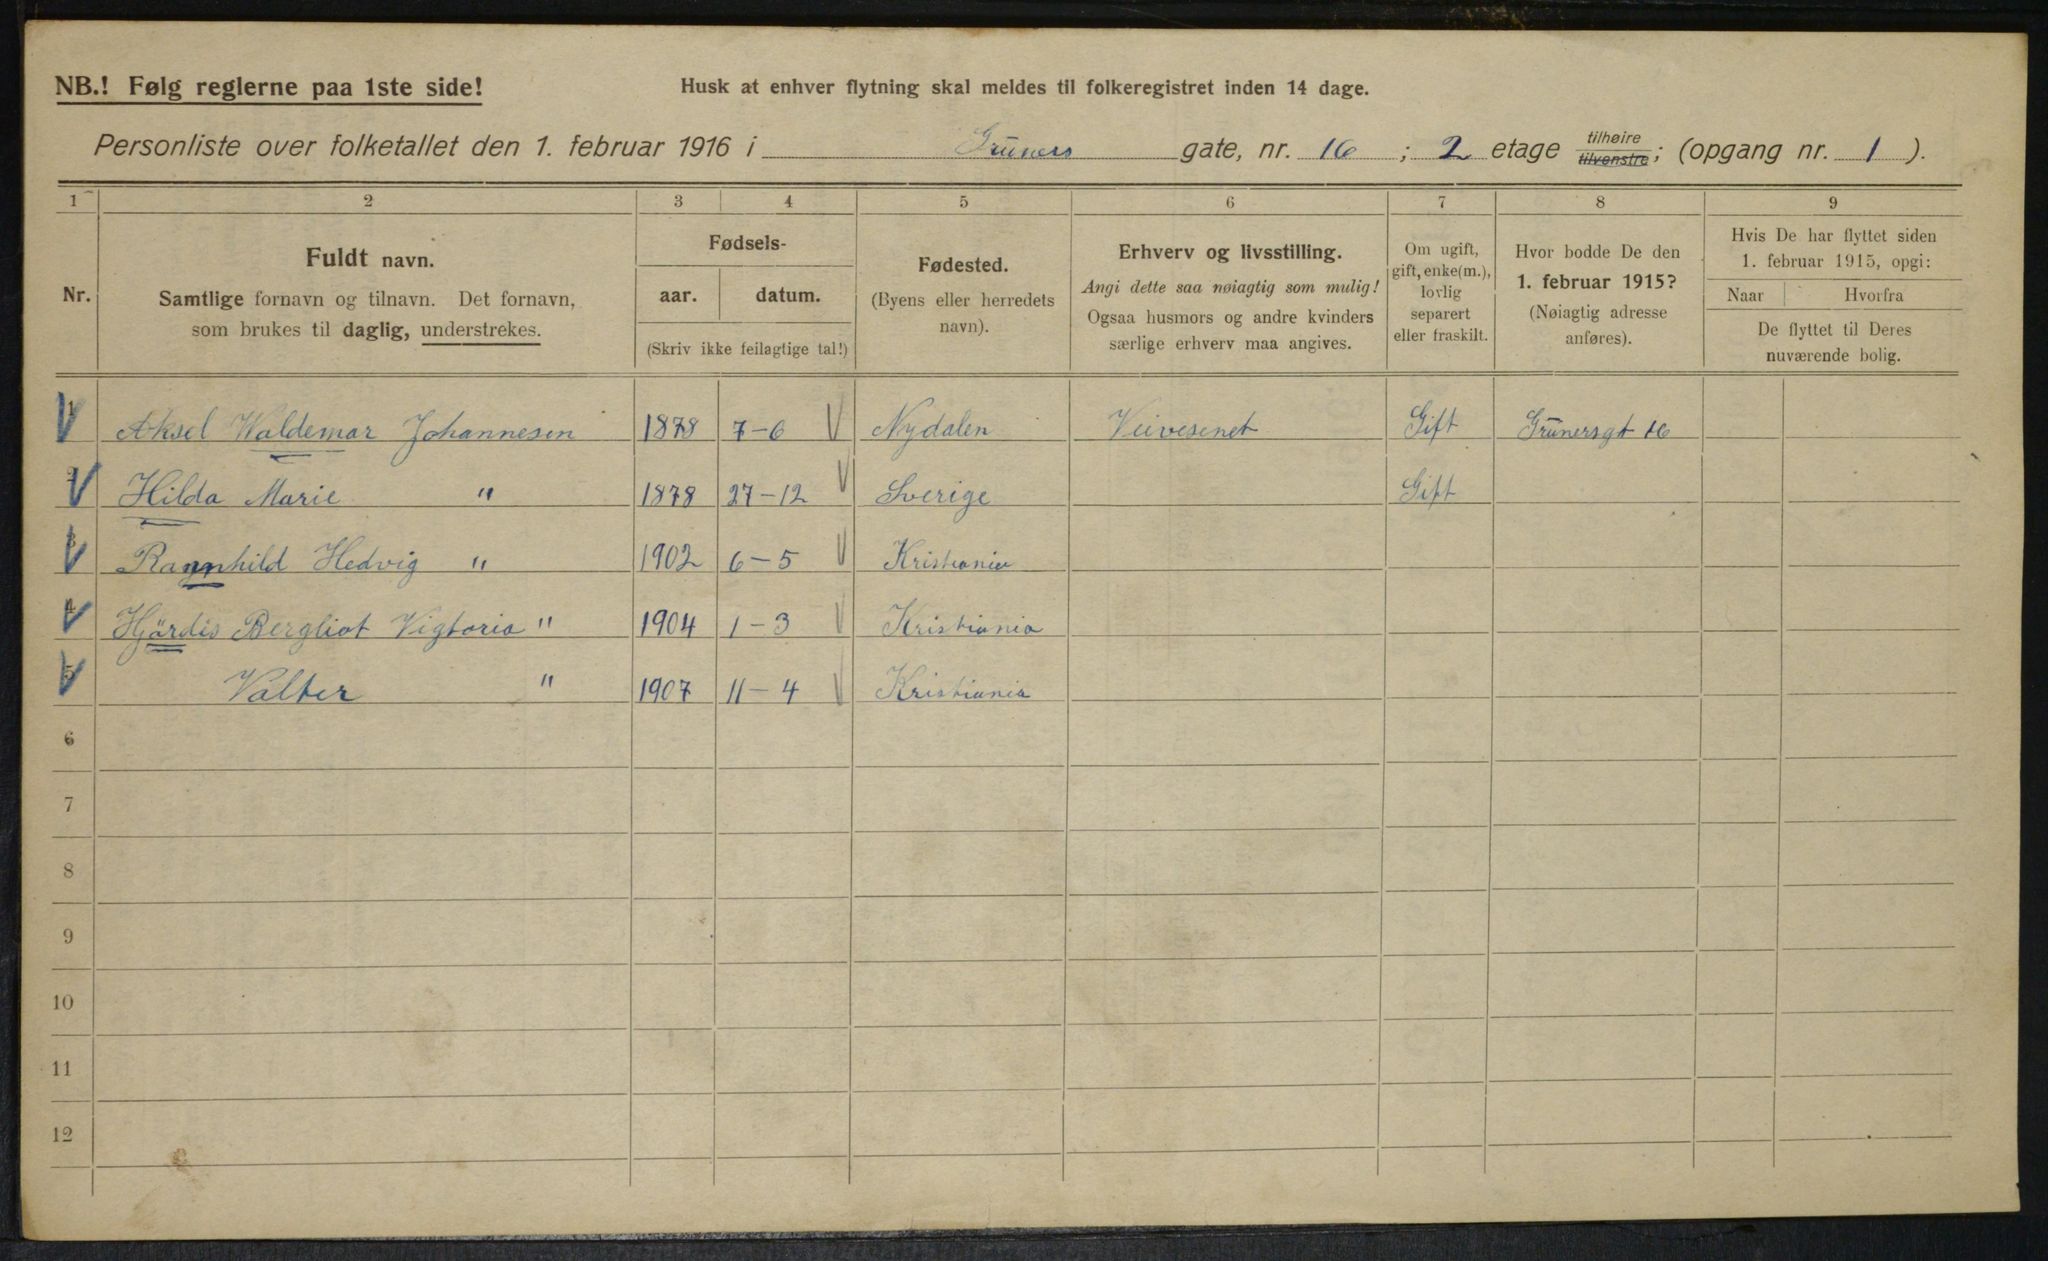 NB.! Følg reglerne paa 1ste side!
Husk at enhver flytning skal meldes til folkeregistret inden 14 dage.
Personliste over folketallet den 1. februar 1916 i Grüners gate, nr. 16 ; 2 etage tilhøire tilvenstre; (opgang nr. 1 ).
1 2 3 4 5 6 7 8 9
Nr.
Fuldt navn.
Samtlige fornavn og tilnavn. Det fornavn,
som brukes til daglig, understrekes.
Fødsels-
aar. datum.
(Skriv ikke feilagtige tal!)
Fødested.
(Byens eller herredets
navn).
Erhverv og livsstilling.
Angi dette saa nøiagtig som mulig!
Ogsaa husmors og andre kvinders
særlige erhverv maa angives.
Om ugift,
gift, enke(m.),
lovlig
separert
eller fraskilt.
Hvor bodde De den
1. februar 1915?
(Nøiagtig adresse
anføres).
Hvis De har flyttet siden
1. februar 1915, opgi:
Naar Hvorfra
De flyttet til Deres
nuværende bolig.
1 Aksel Waldemar Johannesen 1878 7-6 Nydalen Veivesenet Gift Grünersgt 16
2 Hilda Marie " 1878 27-12 Sverige Gift
3 Ragnhild Hedvig " 1902 6-5 Kristiania
4 Hjördis Bergliot Vigtoria " 1904 1-3 Kristiania
5 Valter " 1907 11-4 Kristiania
6
7
8
9
10
11
12